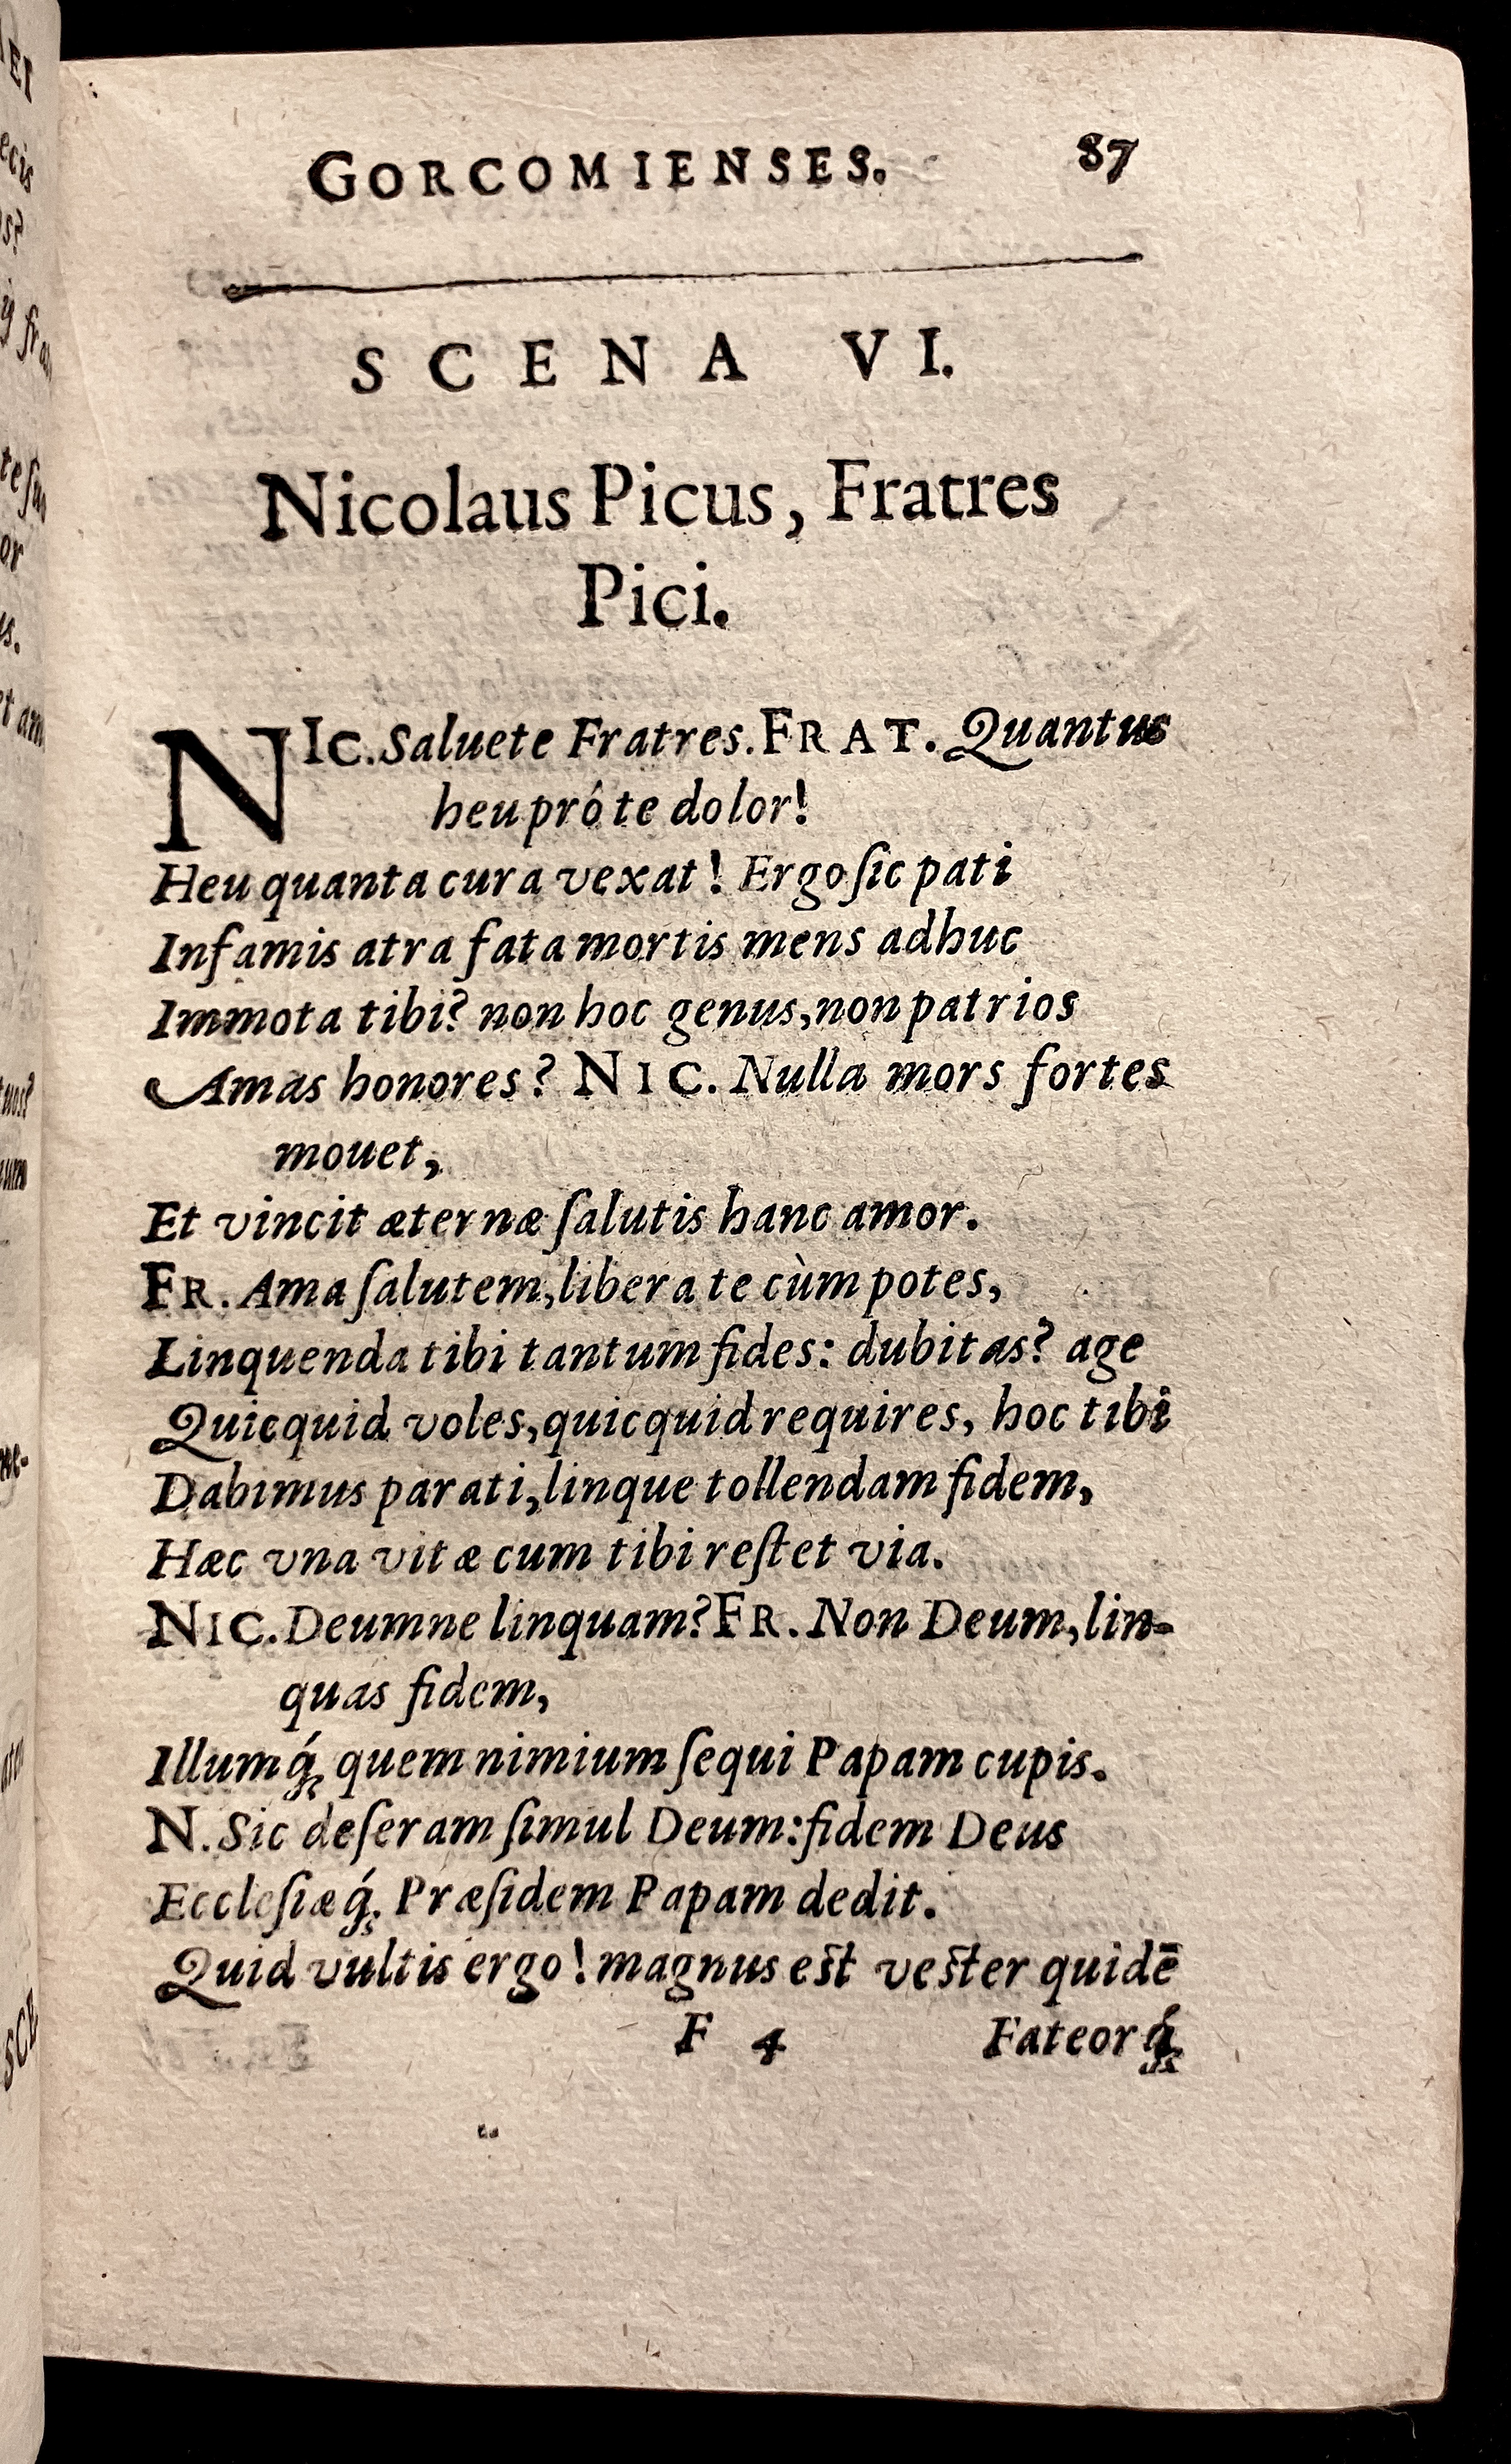 GORCOMIENSES. 87
SCENA VI.
Nicolaus Picus, Fratres
Pici.
NIC. Saluete Fratres. FRAT. Quantus
heu pró te dolor!
Heu quanta cura vexat! Ergo ſic pati
Infamis atra fata mortis mens adhuc
Immota tibi? non hoc genus, non patrios
Amas honores? NIC. Nulla mors fortes
mouet,
Et vincit æternæ ſalutis hanc amor.
FR. Ama ſalutem, libera te cùm potes,
Linquenda tibi tantum fides: dubitas? age
Quicquid voles, quicquid requires, hoc tibi
Dabimus parati, linque tollendam fidem,
Hæc vna vitæ cum tibi reſtet via.
NIC. Deumne linquam? FR. Non Deum, lin-
quas fidem,
Illumq́; quem nimium ſequi Papam cupis.
N. Sic deſeram ſimul Deum: fidem Deus
Eccleſiæq́; Præſidem Papam dedit.
Quid vultis ergo! magnus eſt veſter quidē
F 4 Fateorq́;